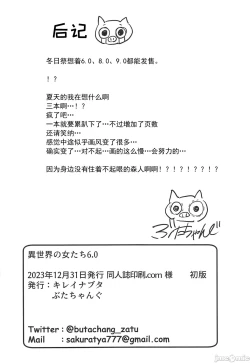 后记
冬日祭想着6.0、8.0、9.0都能发售。
!?
夏天的我在想什么啊
三本啊…!?
疯了吧…
一本就要累趴下了…不过增加了页数
还请笑纳…
感觉中途似乎画风变了很多…
确实变了…对不起…画的这么慢…会努力的…
因为身边没有住着不起眼的森人啊啊!?!?!?!?!?
ぶたちゃんぐ
異世界の女たち6.0
2023年12月31日発行 同人誌印刷.com 様 初版
発行:キレイナブタ
ぶたちゃんぐ
Twitter:@butachang_zatu
Mail :sakuratya777@gmail.com